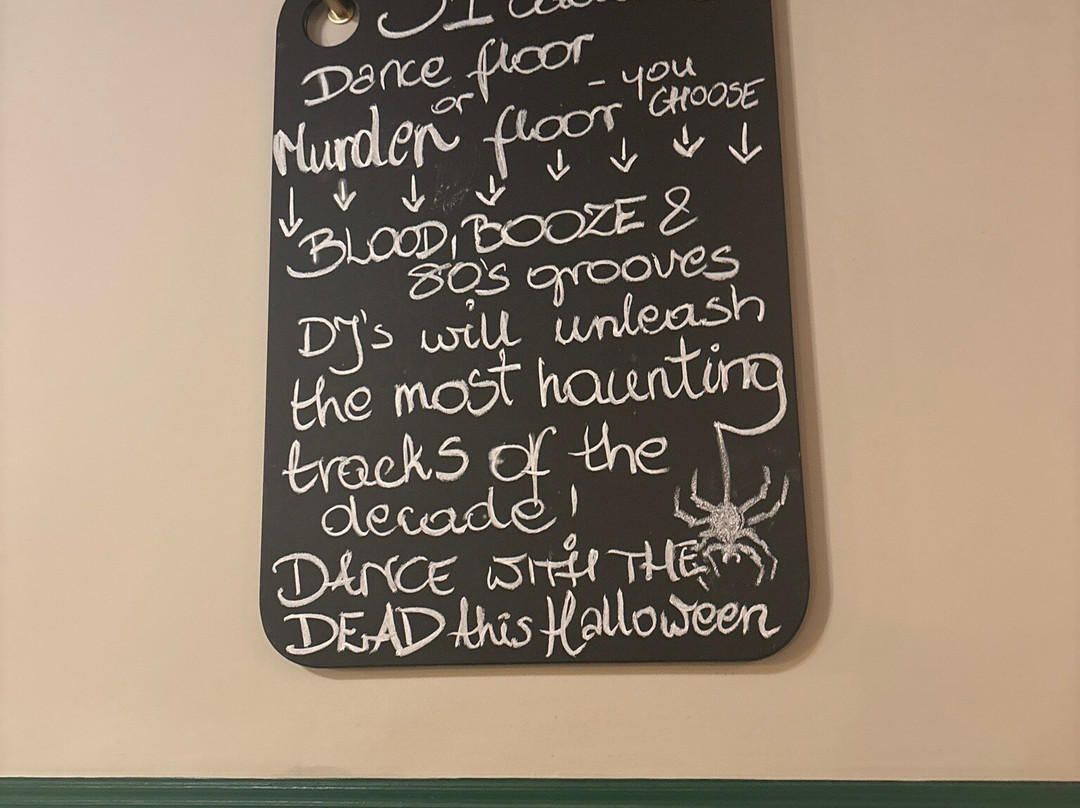 Dance floor
or - you
CHOOSE
Murder floor
BLOOD, BOOZE &
80's grooves
DJ's will unleash
the most haunting
tracks of the
decade!
DANCE WITH THE
DEAD this Halloween